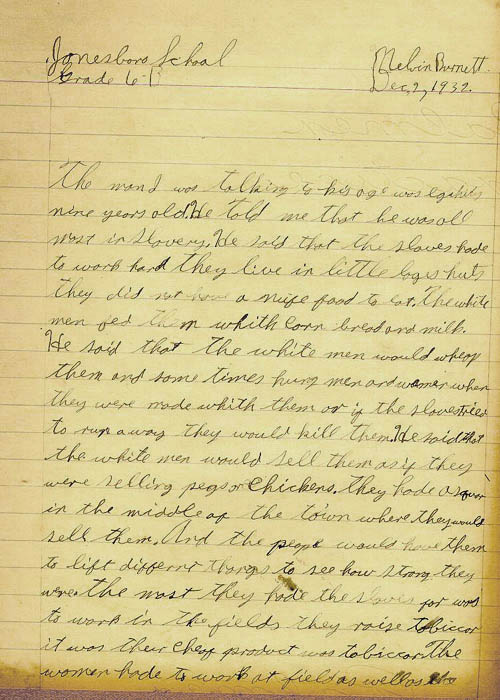 Jonesboro School
Grade 6-B
Melvin Burnett
Dec, 2, 1932.
The man I was talking to his age was eighty
nine years old. He told me that he was all
most in slavery. He said that the slaves hade
to work hard they live in little logs huts
they did not have a nufe food to eat. The white
men fed them whith corn bread and milk.
He said that the white men would wheap
them and some times hung men and woman when
they were made whith them or if the slaves tried
to run away they would kill them. He said that
the white men would sell them as if they
were selling pegs or chickens. they hade a squar
in the middle of the town where they would
sell them. And the people would have them
to lift differnt things to see how strong they
were. the most they hade the slaves for was
to work in the fields they raise tobiccor
it was their cheaf product was tobiccor. The
women hade to work at field as well as the